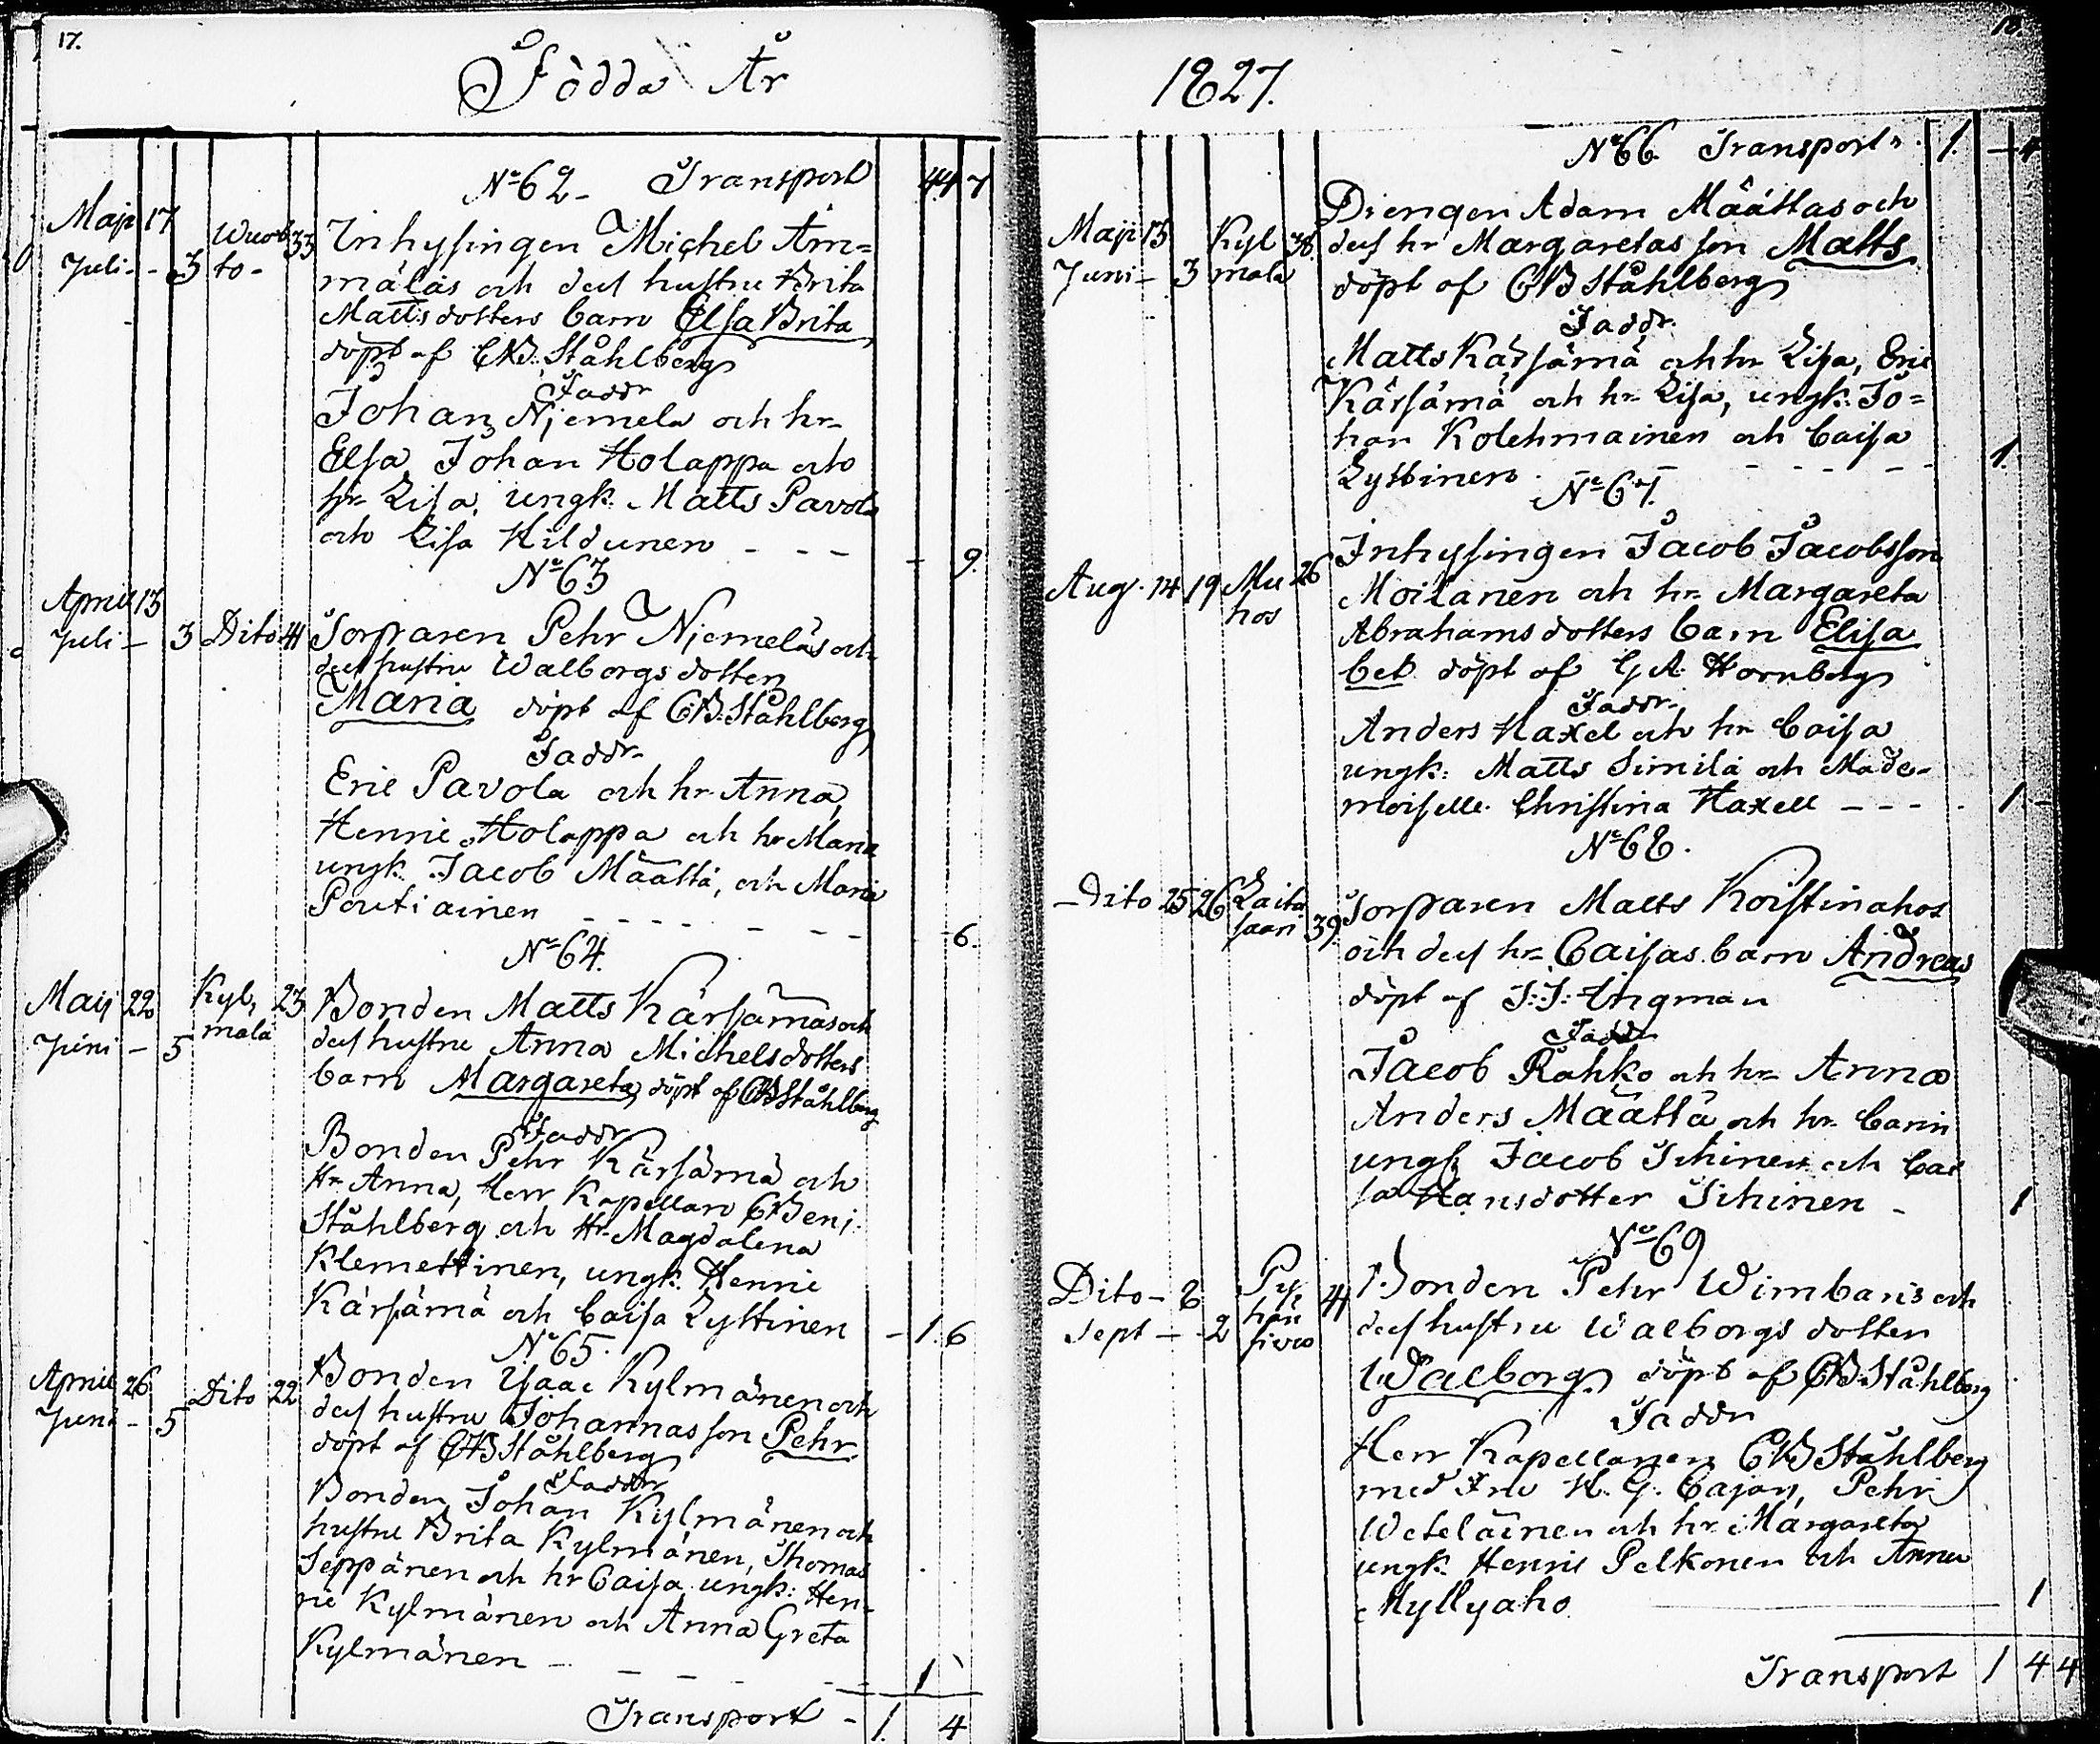 17.
Födda År
No 62 - Transport 44 7
Maji 17 Wuol 33 Inhysingen Michel Äm=
Juli - 3 to - mäläs och dess hustru Brita
Matts dotters barn Elsa Brita
döpt af CB. Ståhlberg
Faddr
Johan Niemela och hr
Elsa, Johan Holappa och
hr Lisa, ungk. Matts Pavola
och Lisa Hildunen - - - - 9.
No 63
April 13
Juli - 3 Dito 41 Torparen Pehr Niemeläs och
dess hustru Walborgs dotter
Maria döpt af CB. Ståhlberg
Faddr
Eric Pavola och hr Anna,
Henric Holappa och hr Maria
ungk. Jacob Määttä, och Maria
Poutiainen - - - - - 6.
No 64.
Maij 22 Kyl, 23 Bonden Matts Kärsämäs och
Juni - 5 mälä dess hustru Anna Michelsdotters
barn Margareta, döpt af CB Ståhlberg
Faddr
Bonden Pehr Kärsämä och
Hr Anna, Herr Kapellan C Benj.
Ståhlberg och Hr Magdalena
Klemettinen, ungk. Henric
Kärsämä och Caisa Lyttinen - 1. 6
No 65.
April 26 Dito 22 Bonden Isaac Kylmänen och
Juni - 5 dess hustru Johannas son Pehr
döpt af CB Ståhlberg
Faddr
Bonden Johan Kylmänen och
hustru Brita Kylmänen, Thomas
Seppänen och hr Caisa ungk: Hen-
ric Kylmänen och Anna Greta
Kylmänen - - - - - 1
Transport - 1. 4
18.
1827.
No 66. Transport 1. - 4
Drengen Adam Määttas och
Maji 13 Kyl 38. dess hr Margaretas son Matts
Juni - 3 mälä döpt af CB Ståhlberg
Faddr.
Matts Kärsämä och hr Lisa, Eric
Kärsämä och hr Lisa, ungk. Jo=
han Kolehmainen och Caisa
Lyttinen. - - - - 1.
No 67.
Inhysingen Jacob Jacobsson
Aug. 14 19 Mu 26 Moilanen och hr Margareta
hos Abrahams dotters barn Elisa
bet döpt af G A Hornberg
Faddr.
Anders Haxel och hr Caisa
ungk: Matts Similä och Made-
moiselle Christina Haxell - - - 1 -
No 68.
- Dito 25 26 Laita 39. Torparen Matts Koistinahos
saari och dess hr Caisas barn Andreas
döpt af J: J: Ingman
Faddr
Jacob Rahko och hr Anna
Anders Määttä och hr Carin
ungk Jacob Ihinen och Cai
sa Hansdotter Ihinen - 1
No 69
Dito - 8 Py 41 Bonden Pehr Wimbaris och
Sept - - 2 hän dess hustru Walborgs dotter
sivu Walborg. döpt af CB Ståhlberg
Faddr
Herr Kapellanen CB Ståhlberg
med Fru H. G. Cajan, Pehr
Weteläinen och hr Margareta
ungk Henric Pelkonen och Anna
Myllyaho 1
Transport 1 4 4